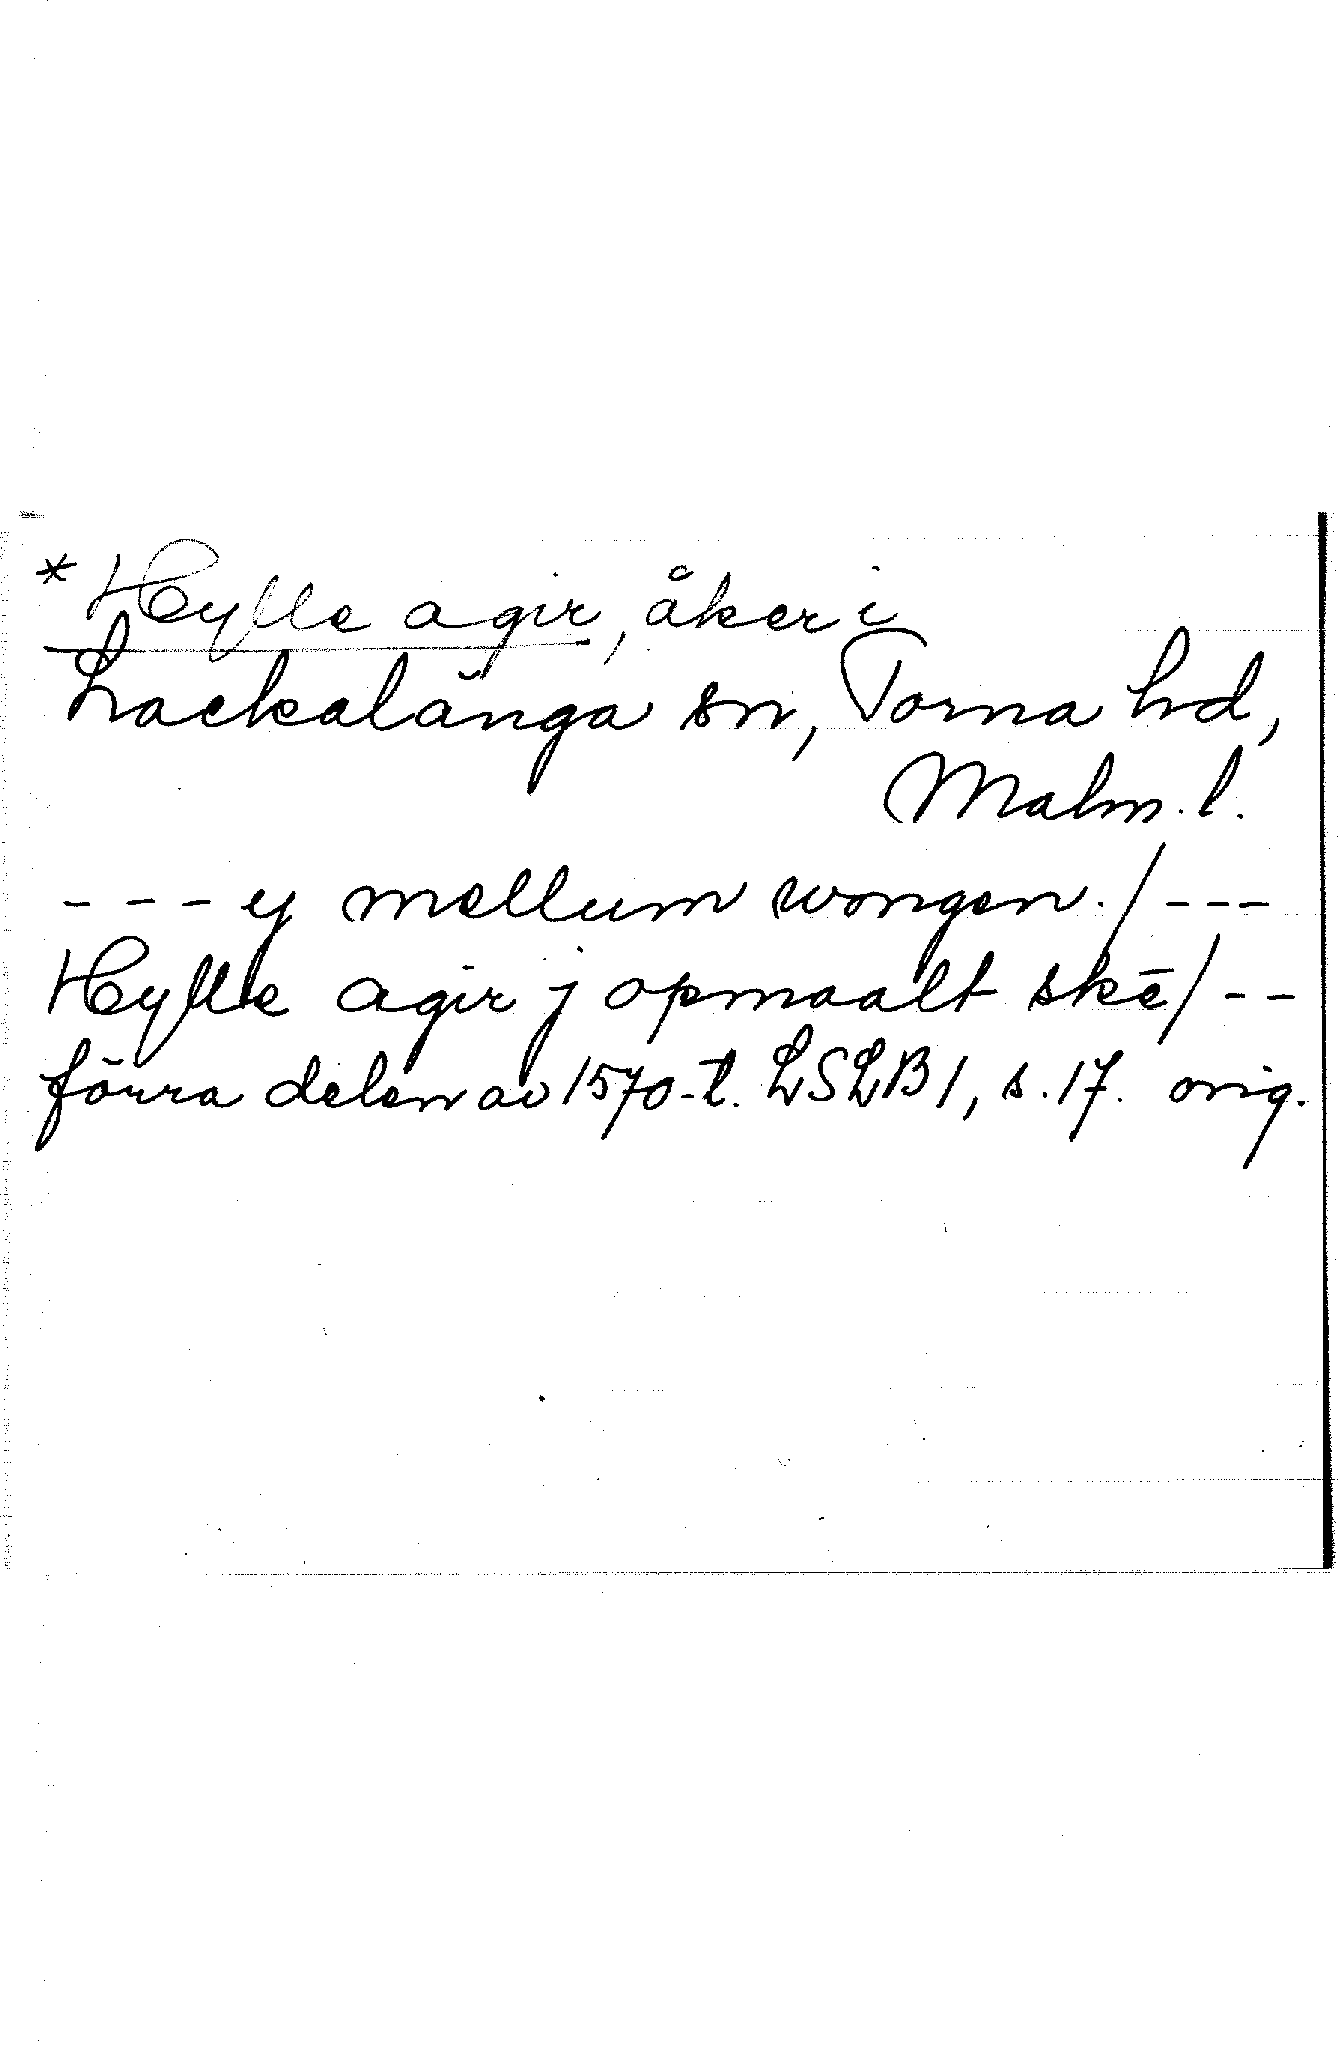 *Hylle agir, åker i
Lackalänga sn, Torna hd,
Malm. l.
- - - y mellum wongen. / - - -
Hylle agir j opmaalt skē / - -
förra delen av 1570-t. LSLB 1, s. 17. orig.